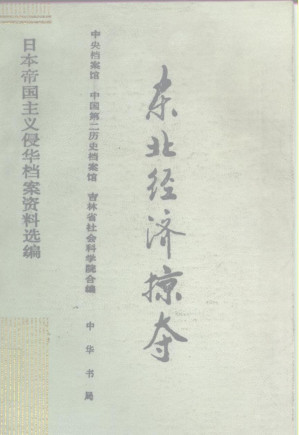 日本帝国主义侵华档案资料选编
东北经济掠夺
中央档案馆 中国第二历史档案馆 吉林省社会科学院合编
中华书局